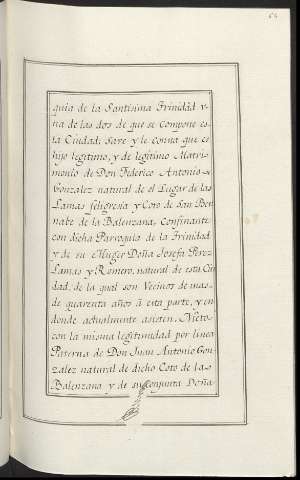 quia de la Santisima Trinidad v
na de las dos de que se compone es
ta Ciudad; Save y le consta que es
hijo legitimo, y de legitimo Matri
monio de Don Federico Antonio
Gonzalez natural de el Lugar de las
Lamas feligresia y Coto de San Ber
nabe de la Balenzana, Confinante
con dicha Parroquia de la Trinidad
y de su Muger Doña Josefa Perez
Lamas y Romero, natural de esta Ciu
dad, de la qual son Vecinos de mas
de quarenta años à esta parte, y en
donde actualmente asisten. Nieto
con la misma legitimidad por linea
Paterna de Don Juan Antonio Gon
zalez natural de dicho Coto de la
Balenzana y de su conjunta Doña